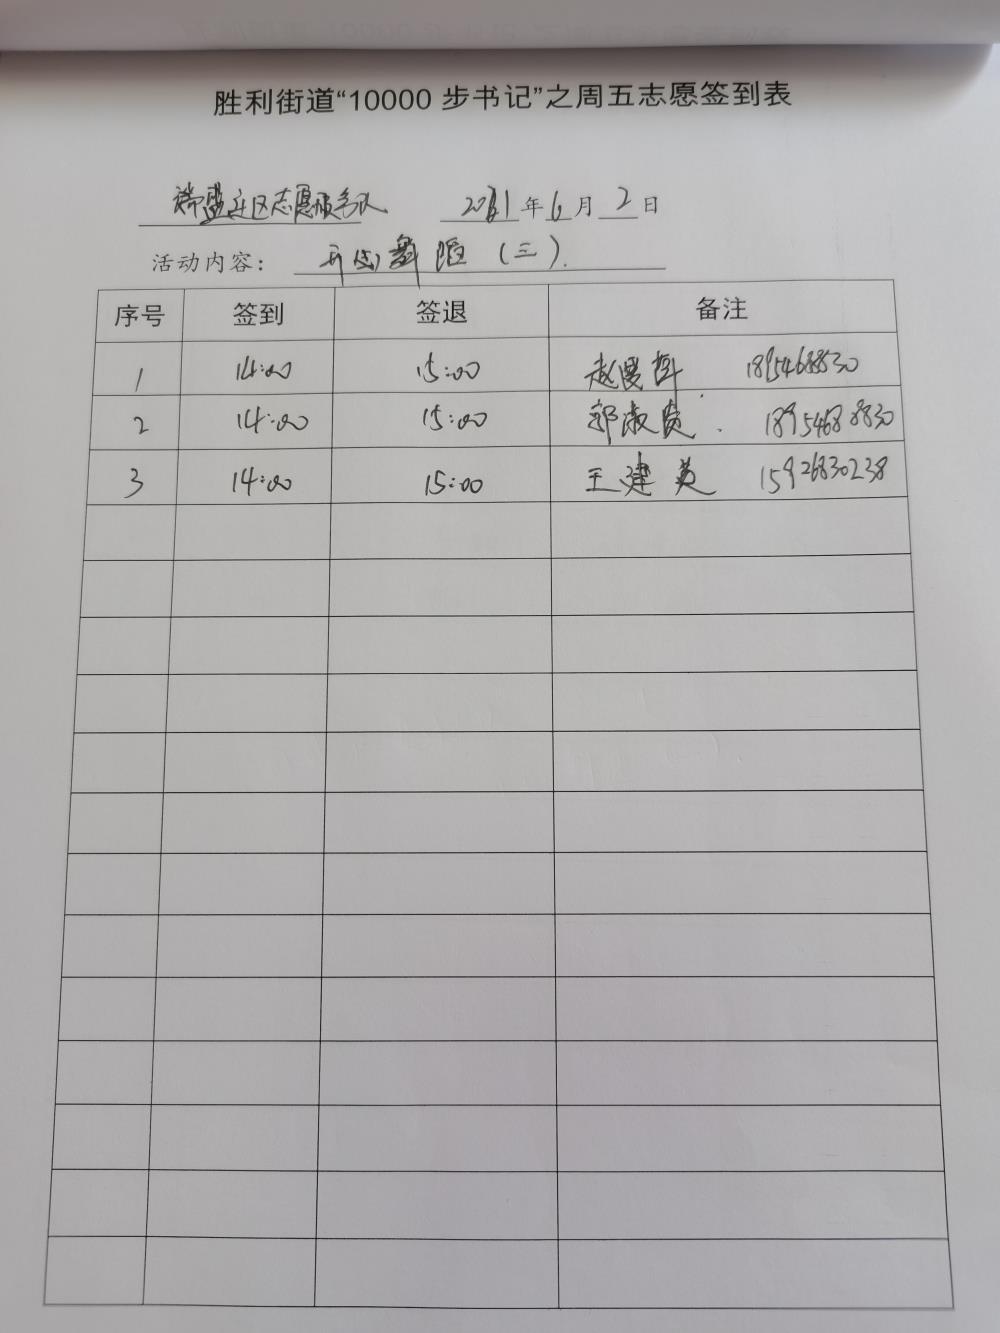 胜利街道“10000 步书记”之周五志愿签到表
瑞盛社区志愿服务队 2021年6月2日
活动内容： (三).
序号 签到 签退 备注
1 14:00 15:00 赵
2 14:00 15:00 郭淑贤 18954688830
3 14:00 15:00 王建英 15926830238